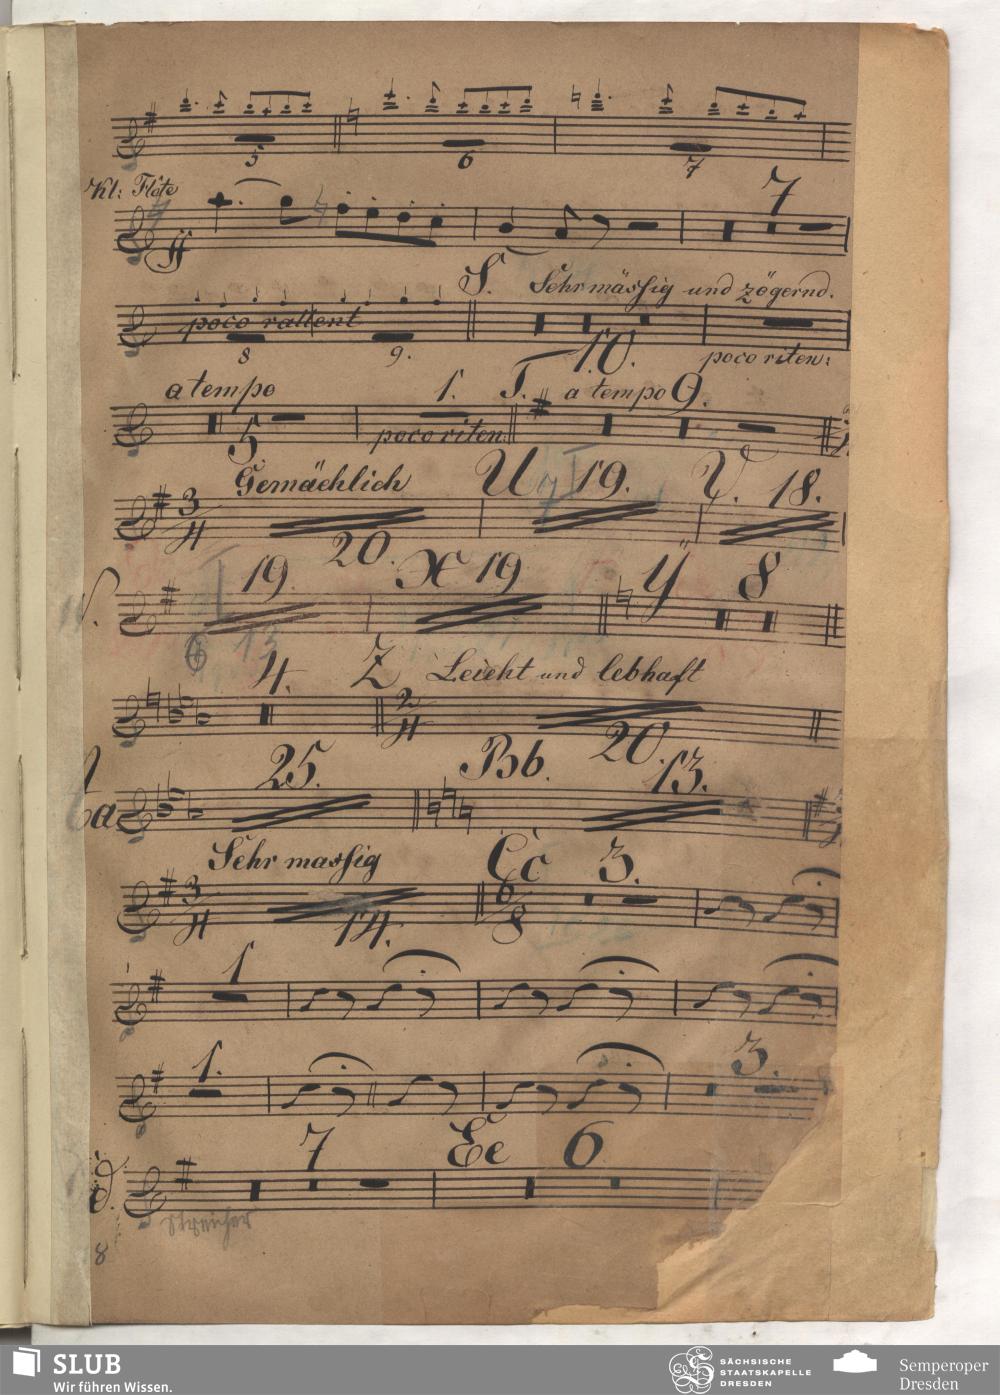 5 6 7
Kl: Flöte
ff 7
S. Sehr mässig und zögernd.
poco rallent
8 9. 10. poco riten:
a tempo 1. T. a tempo 9.
5 poco riten:
Gemächlich U 19. V. 18.
3/4 20.
19 X 19 Y 8
13
4. Z Leicht und lebhaft
2/4 20.
25. Bb. 13.
a
Sehr massig Cc 3.
3/4 14. 6/8
1
1. 3.
7 Ee 6
d.
Streicher
8
SLUB
Wir führen Wissen.
SÄCHSISCHE
STAATSKAPELLE
DRESDEN
Semperoper
Dresden